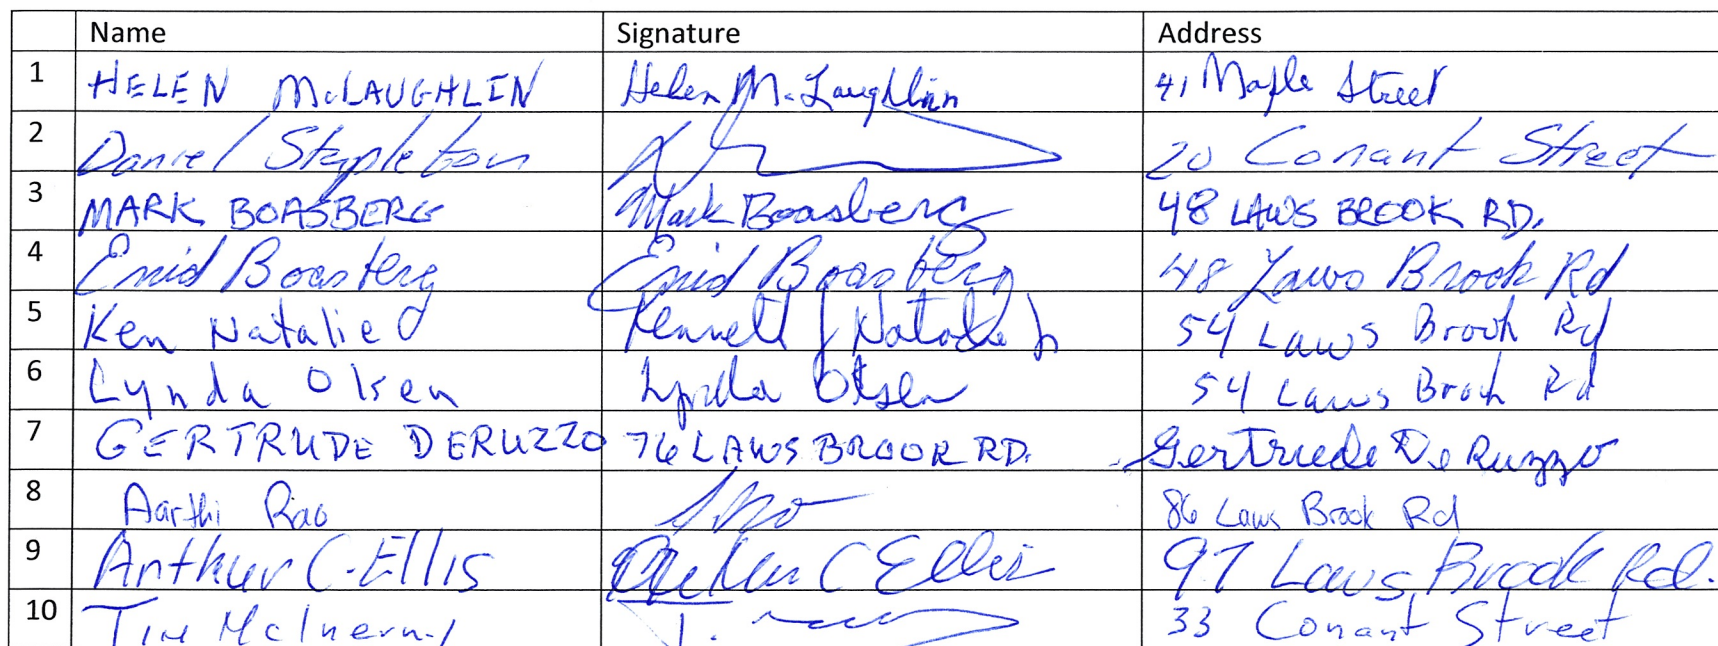 Name Signature Address
1 HELEN McLAUGHLIN Helen McLaughlin 41 Maple Street
2 Daniel Stapleton 20 Conant Street
3 MARK BOASBERG Mark Boasberg 48 LAWS BROOK RD.
4 Enid Boasberg Enid Boasberg 48 Laws Brook Rd
5 Ken Natalie Kenneth J Natalie Jr 54 Laws Brook Rd
6 Lynda Olsen Lynda Olsen 54 Laws Brook Rd
7 GERTRUDE DERUZZO 76 LAWS BROOK RD. Gertrude DeRuzzo
8 Aarthi Rao 86 Laws Brook Rd
9 Arthur C. Ellis Arthur C Ellis 97 Laws Brook Rd.
10 Tim McInerny 33 Conant Street